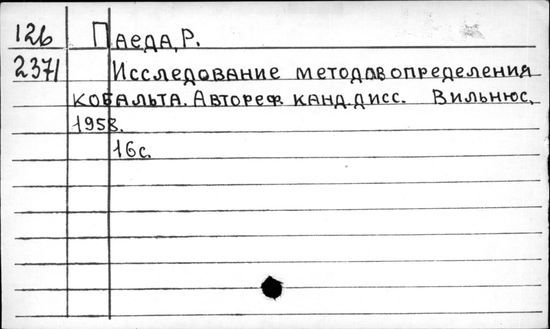 126 Паеда, Р.
2371 Исследование методов определения
кобальта. Автореф. канд. дисс. Вильнюс,
1958.
16с.